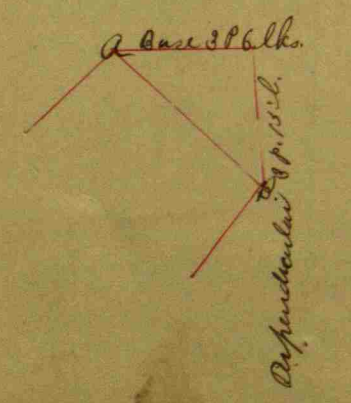 a Base 3 P 6 lks.
Perpendicular 3 p. 15 l.